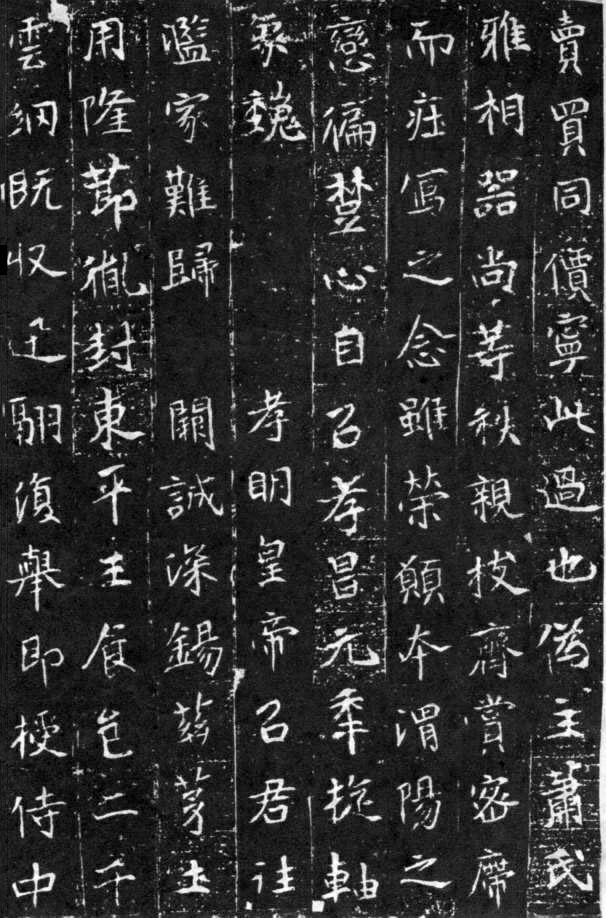 賣買同價寧此過也僞主蕭氏
雅相器尚等秩親枝齊賞密席
而庄寫之念雖榮願本渭陽之
戀偏楚心自以孝昌元年旋軸
象魏 孝明皇帝以君往
濫家難歸 闕誠深錫茲茅土
用隆節胤封東平王食邑二千
雲網既收迅翮復舉即授侍中